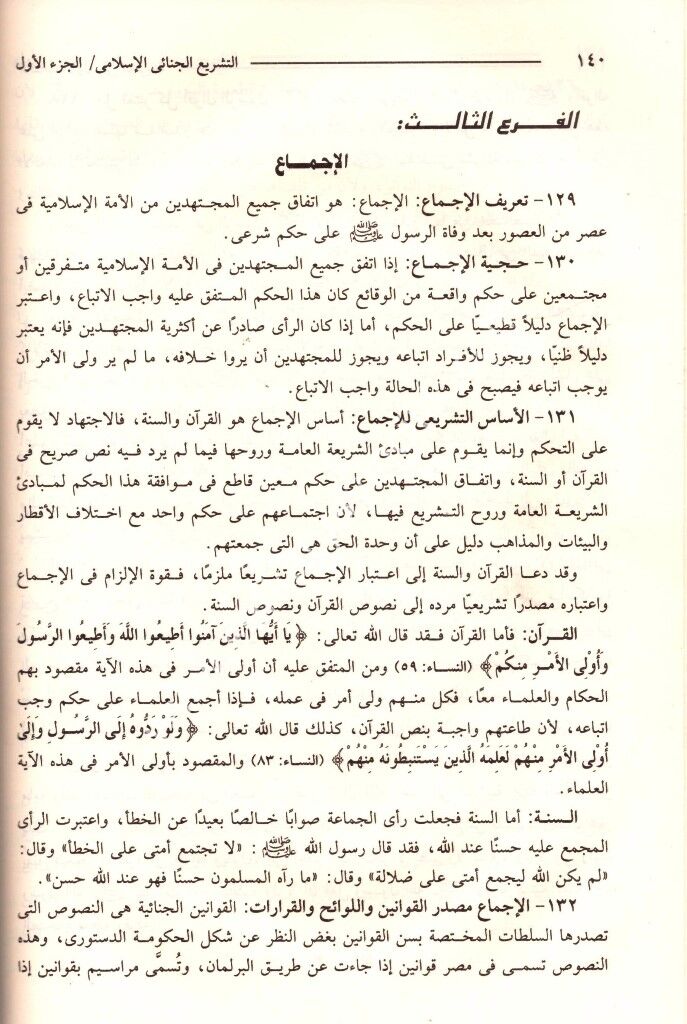 ١٤٠ التشريع الجنائى الإسلامى/ الجزء الأول
الفـــرع الثالـــث:
الإجمـاع
١٢٩- تعريف الإجماع: الإجماع: هو اتفاق جميع المجتهدين من الأمة الإسلامية فى
عصر من العصور بعد وفاة الرسول ﷺ على حكم شرعى.
١٣٠- حجية الإجماع: إذا اتفق جميع المجتهدين فى الأمة الإسلامية متفرقين أو
مجتمعين على حكم واقعة من الوقائع كان هذا الحكم المتفق عليه واجب الاتباع، واعتبر
الإجماع دليلاً قطعيًا على الحكم، أما إذا كان الرأى صادرًا عن أكثرية المجتهدين فإنه يعتبر
دليلاً ظنيًا، ويجوز للأفراد اتباعه ويجوز للمجتهدين أن يروا خلافه، ما لم ير ولى الأمر أن
يوجب اتباعه فيصبح فى هذه الحالة واجب الاتباع.
١٣١- الأساس التشريعى للإجماع: أساس الإجماع هو القرآن والسنة، فالاجتهاد لا يقوم
على التحكم وإنما يقوم على مبادئ الشريعة العامة وروحها فيما لم يرد فيه نص صريح فى
القرآن أو السنة، واتفاق المجتهدين على حكم معين قاطع فى موافقة هذا الحكم لمبادئ
الشريعة العامة وروح التشريع فيها، لأن اجتماعهم على حكم واحد مع اختلاف الأقطار
والبيئات والمذاهب دليل على أن وحدة الحق هى التى جمعتهم.
وقد دعا القرآن والسنة إلى اعتبار الإجماع تشريعًا ملزمًا، فقوة الإلزام فى الإجماع
واعتباره مصدرًا تشريعيًا مرده إلى نصوص القرآن ونصوص السنة.
القرآن: فأما القرآن فقد قال الله تعالى: ﴿يَا أَيُّهَا الَّذِينَ آمَنُوا أَطِيعُوا اللَّهَ وَأَطِيعُوا الرَّسُولَ
وَأُولِى الأَمْرِ مِنكُمْ﴾ (النساء: ٥٩) ومن المتفق عليه أن أولى الأمر فى هذه الآية مقصود بهم
الحكام والعلماء معًا، فكل منهم ولى أمر فى عمله، فإذا أجمع العلماء على حكم وجب
اتباعه، لأن طاعتهم واجبة بنص القرآن، كذلك قال الله تعالى: ﴿وَلَوْ رَدُّوهُ إِلَى الرَّسُولِ وَإِلَىٰ
أُولِى الأَمْرِ مِنْهُمْ لَعَلِمَهُ الَّذِينَ يَسْتَنبِطُونَهُ مِنْهُمْ﴾ (النساء: ٨٣) والمقصود بأولى الأمر فى هذه الآية
العلماء.
السنة: أما السنة فجعلت رأى الجماعة صوابًا خالصًا بعيدًا عن الخطأ، واعتبرت الرأى
المجمع عليه حسنًا عند الله، فقد قال رسول الله ﷺ: «لا تجتمع أمتى على الخطأ» وقال:
«لم يكن الله ليجمع أمتى على ضلالة» وقال: «ما رآه المسلمون حسنًا فهو عند الله حسن».
١٣٢- الإجماع مصدر القوانين واللوائح والقرارات: القوانين الجنائية هى النصوص التى
تصدرها السلطات المختصة بسن القوانين بغض النظر عن شكل الحكومة الدستورى، وهذه
النصوص تسمى فى مصر قوانين إذا جاءت عن طريق البرلمان، وتُسمَّى مراسيم بقوانين إذا